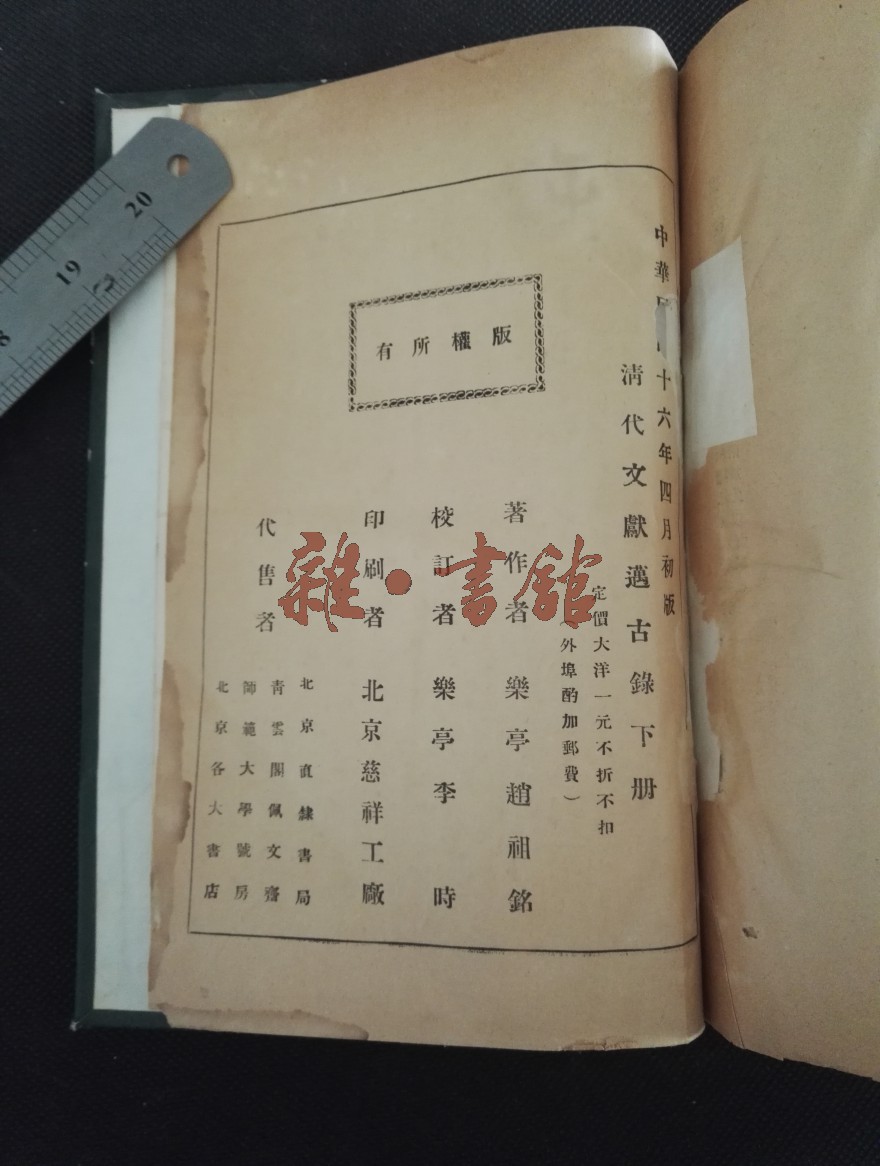 中華民國十六年四月初版
清代文獻邁古錄下册
定價大洋一元不折不扣
外埠酌加郵費）
版權所有
著作者 樂亭趙祖銘
校訂者 樂亭李時
印刷者 北京慈祥工廠
代售者
北京直隸書局
青雲閣佩文齋
師範大學號房
北京各大書店
雜·書館
18
19
20